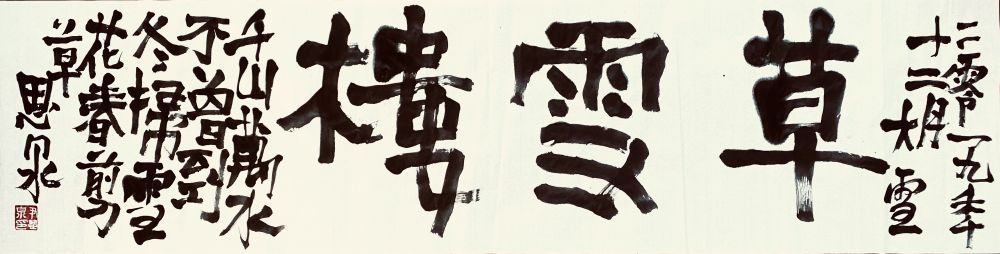 二零一九年
十二月大雪
草雪樓
千山萬水
不曾到
冬掃雪
花春剪
草
思泉